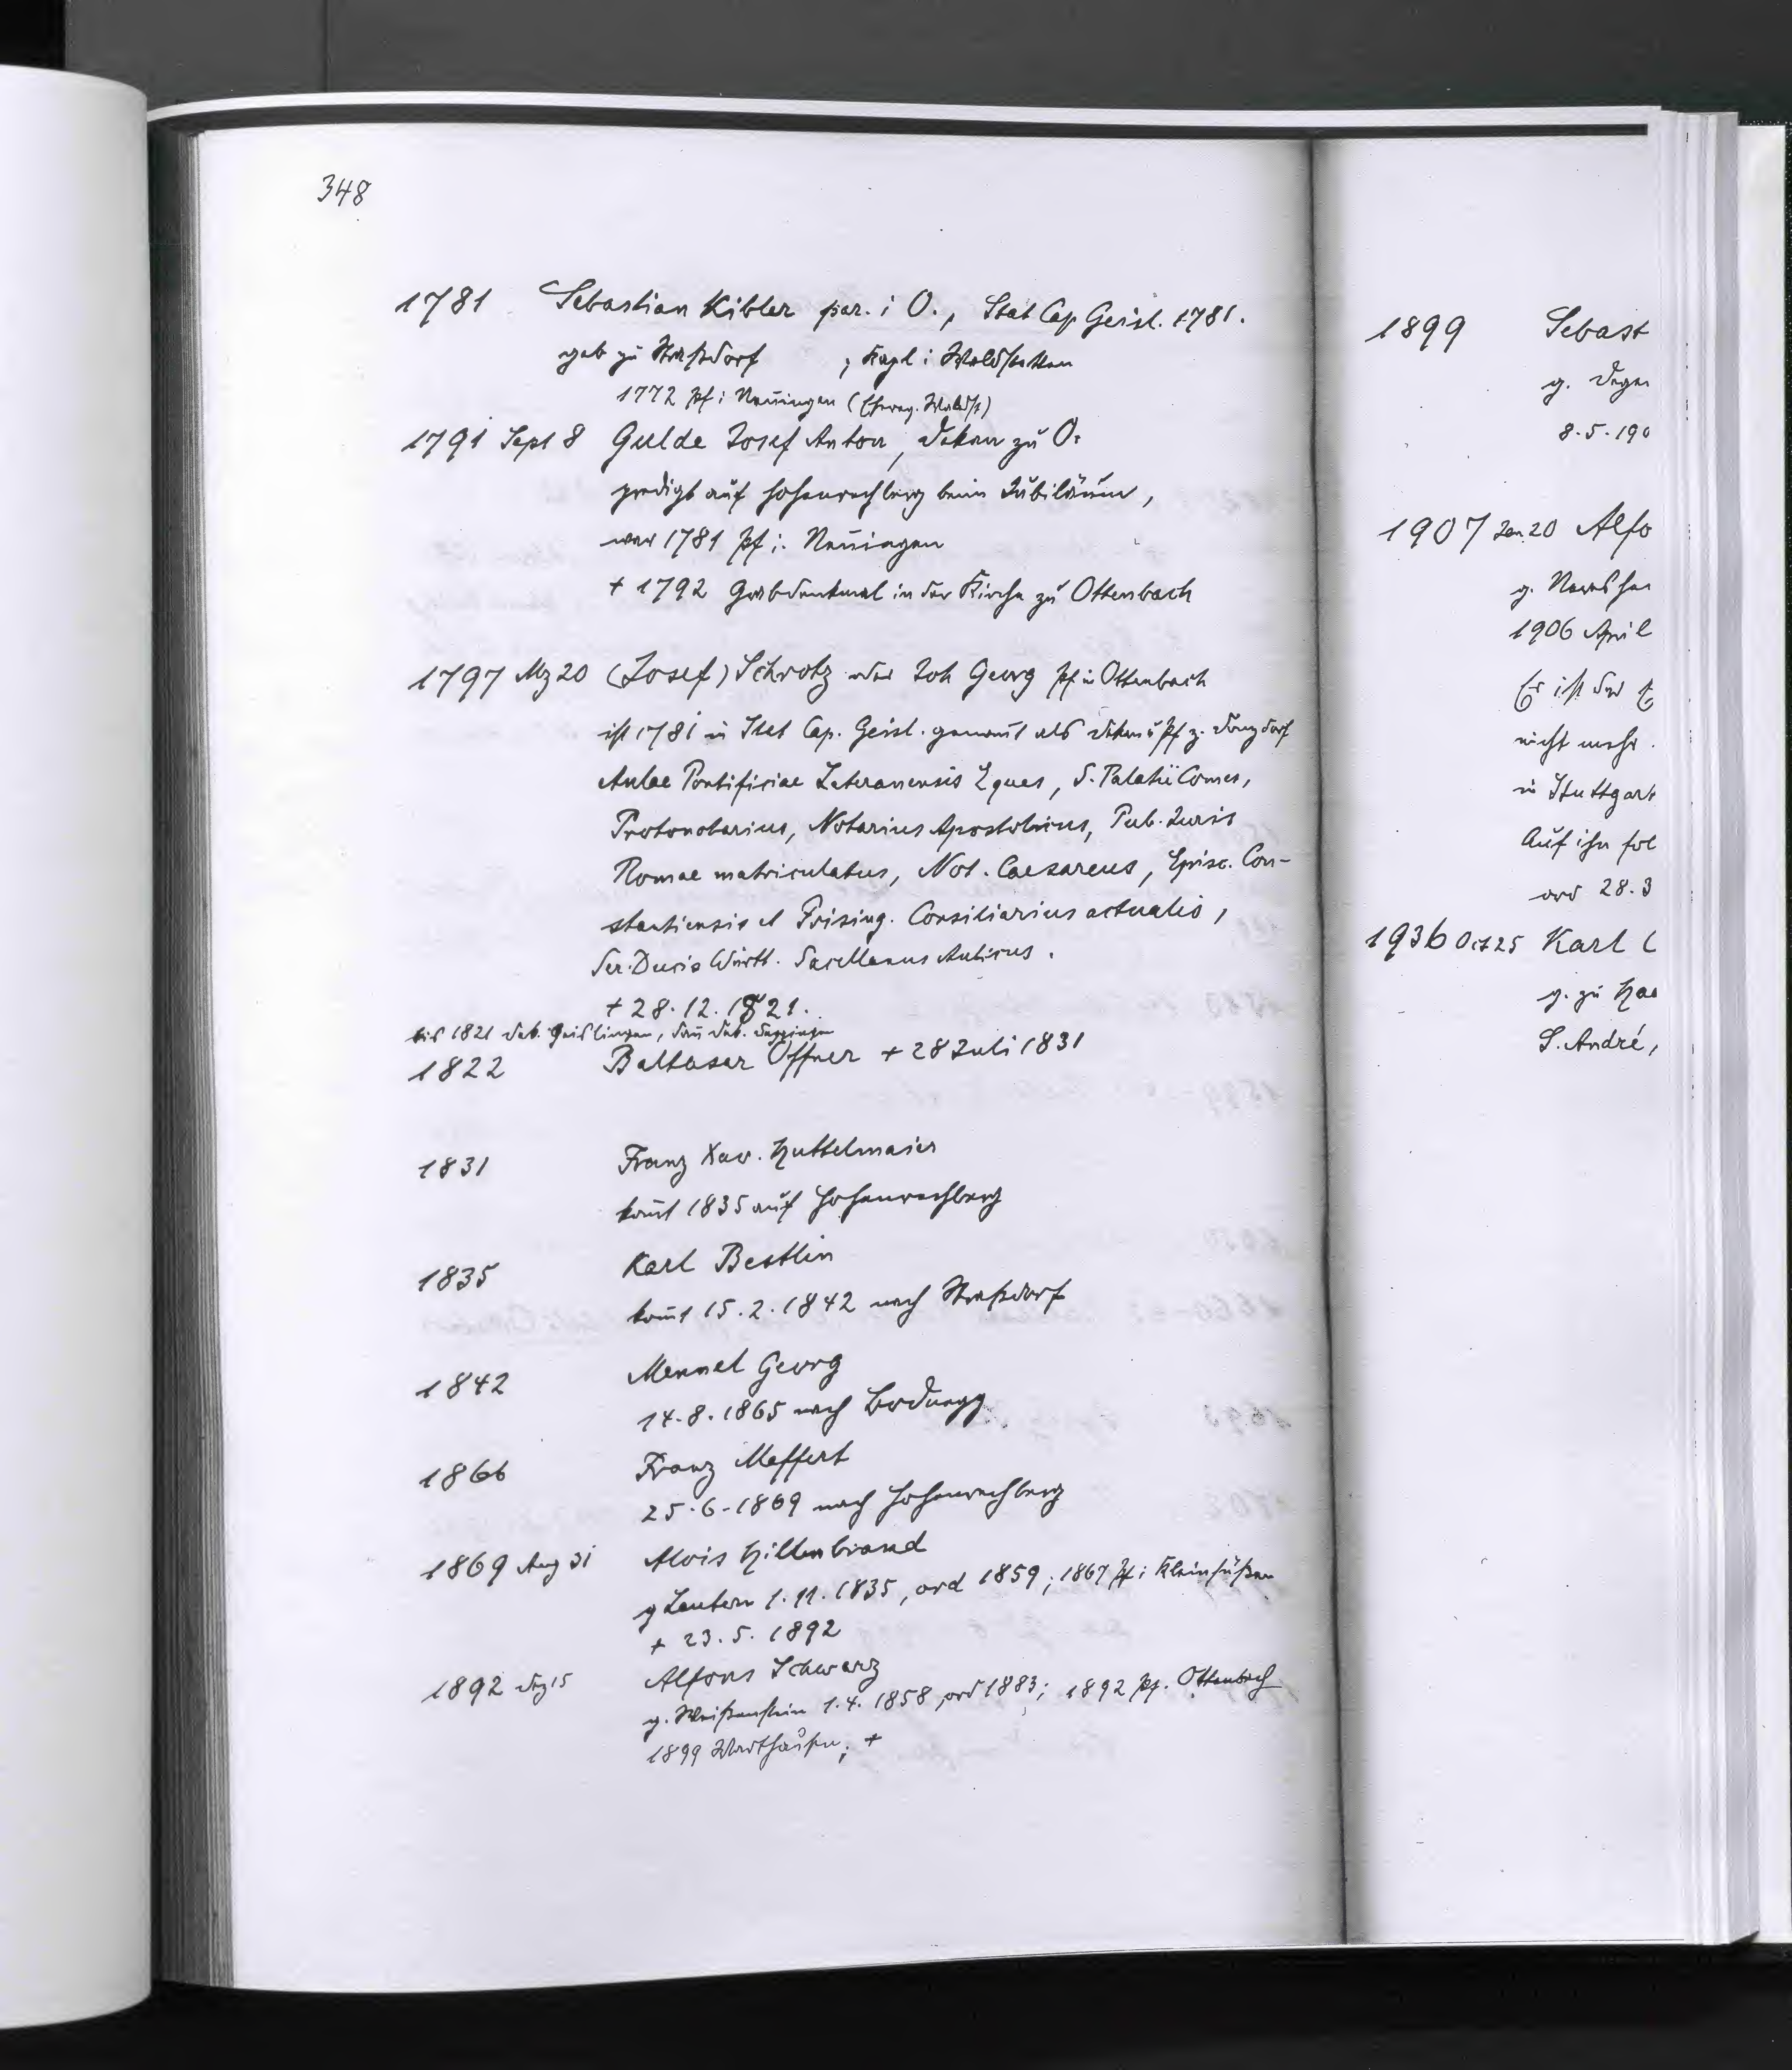 348
1781 Sebastian Kibler par. i O., Stat Cap Geisl. 1781.
geb zu Straßdorf ; Kapl i Waldstetten
1772 Pf i Nenningen (Chronog. Waldst)
1791 Sept 8 Gulde Josef Anton, Dekan zu O.
predigt auf Hohenrechberg beim Jubiläum,
war 1781 Pf i. Nenningen
+ 1792 Grabdenkmal in der Kirche zu Ottenbach
1797 Mz 20 (Josef) Schrotz oder Joh Georg Pf in Ottenbach
ist 1781 in Stat Cap. Geisl. genannt als Dekan u Pf z. Donzdorf
Aulae Pontificiae Lateranensis Eques, S. Palatii Comes,
Protonotarius, Notarius Apostolicus, Pub. Juris
Romae matriculatus, Not. Caesareus, Episc. Con-
stantiensis et Frising. Consiliarius actualis,
Ser. Ducis Württ. Sacellanus Aulicus.
+ 28.12.1821.
bis 1821 Dek. Geislingen, dann Dek. Deggingen
1822 Baltasar Offner + 28 Juli 1831
1831 Franz Xav. Huttelmaier
kommt 1835 auf Hohenrechberg
1835 Karl Bestlin
kommt 15.2.1842 nach Straßdorf
1842 Mennel Georg
14.8.1865 nach Bodnegg
1866 Franz Meffert
25.6.1869 nach Hohenrechberg
1869 Aug 31 Alois Hillenbrand
g Lautern 1.11.1835, ord 1859; 1867 Pf i Kleinsüßen
+ 23.5.1892
1892 Dez 15 Alfons Schwarz
g. Weißenstein 1.4.1858, ord 1883; 1892 Pf. Ottenbach
1899 Warthausen; +
1899 Sebast
g.
8.5.190
1907 Jan 20 Alfo
g.
1906 April
Er ist der
nicht mehr
in Stuttgart
Auf ihn fol
ord 28.3
1936 Oct 25 Karl
g. zu
S. André,